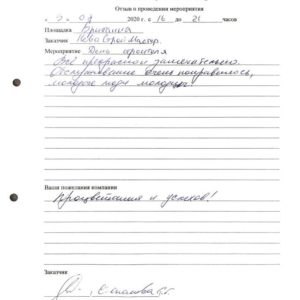 Отзыв о проведении мероприятия
2020 г. с 16 до 21 часов
Площадка
Заказчик НоваСтройМастер.
Мероприятие День строителя
Всё прекрасно и замечательно.
Обслуживание очень понравилось,
молодые люди молодцы.
Ваши пожелания компании
Процветания и успехов!
Заказчик